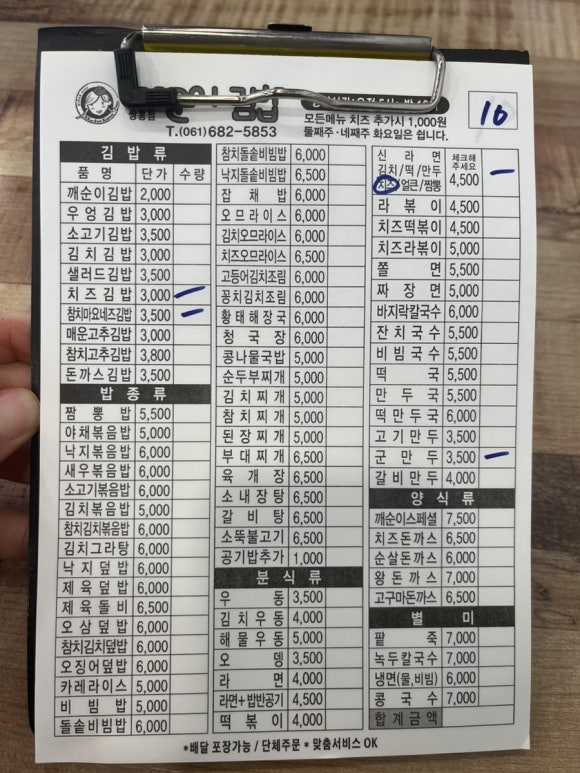 김밥
T.(061)682-5853
모든메뉴 치즈 추가시 1,000원
둘째주·네째주 화요일은 쉽니다.
16
김밥류
품명 단가 수량
깨순이김밥 2,000
우엉김밥 3,000
소고기김밥 3,500
김치김밥 3,500
샐러드김밥 3,500
치즈김밥 3,000
참치마요네즈김밥 3,500
매운고추김밥 3,000
참치고추김밥 3,800
돈까스김밥 3,500
밥종류
짬뽕밥 5,500
야채볶음밥 5,000
낙지볶음밥 6,000
새우볶음밥 6,000
소고기볶음밥 6,000
김치볶음밥 5,000
참치김치볶음밥 6,000
김치그라탕 6,000
낙지덮밥 6,000
제육덮밥 6,000
제육돌비 6,500
오삼덮밥 6,000
참치김치덮밥 6,000
오징어덮밥 6,000
카레라이스 5,000
비빔밥 5,000
돌솥비빔밥 6,000
참치돌솥비빔밥 6,000
낙지돌솥비빔밥 6,500
잡채밥 6,000
오므라이스 6,000
김치오므라이스 6,000
치즈오므라이스 6,500
고등어김치조림 6,000
꽁치김치조림 6,000
황태해장국 6,000
청국장 6,000
콩나물국밥 5,000
순두부찌개 5,000
김치찌개 5,000
참치찌개 5,000
된장찌개 5,000
부대찌개 6,500
육개장 6,500
소내장탕 6,500
갈비탕 6,500
소뚝불고기 6,500
공기밥추가 1,000
분식류
우동 3,500
김치우동 4,000
해물우동 5,000
오뎅 3,500
라면 4,000
라면+밥반공기 4,500
떡볶이 4,000
신라면 체크해주세요
김치/떡/만두 4,500
치즈/얼큰/짬뽕
라볶이 4,500
치즈떡볶이 4,500
치즈라볶이 5,000
쫄면 5,500
짜장면 5,000
바지락칼국수 6,000
잔치국수 5,500
비빔국수 5,500
떡국 5,500
만두국 5,500
떡만두국 6,000
고기만두 3,500
군만두 3,500
갈비만두 4,000
양식류
깨순이스페셜 7,500
치즈돈까스 6,500
순살돈까스 6,000
왕돈까스 7,000
고구마돈까스 6,500
별미
팥죽 7,000
녹두칼국수 7,000
냉면(물,비빔) 6,000
콩국수 7,000
합계금액
*배달 포장가능 / 단체주문 * 맞춤서비스 OK